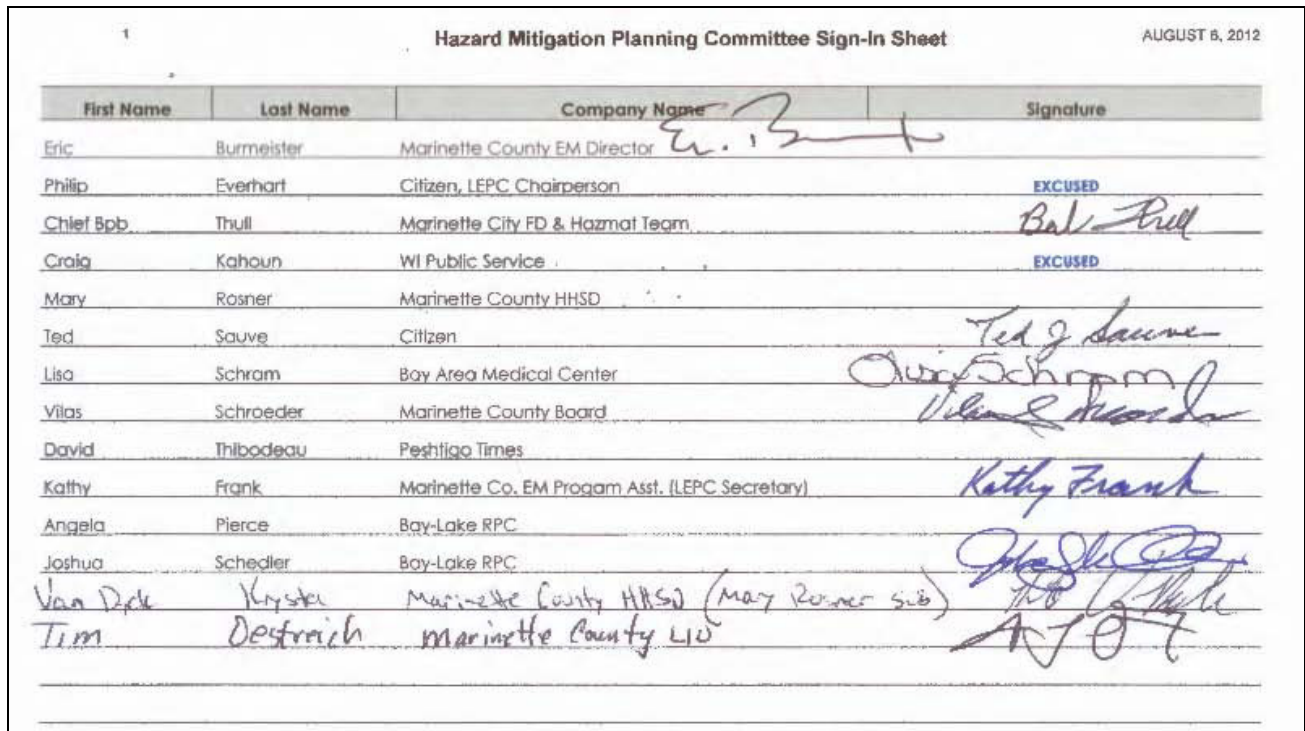 1 Hazard Mitigation Planning Committee Sign-In Sheet AUGUST 6, 2012
First Name Last Name Company Name Signature
Eric Burmeister Marinette County EM Director
Philip Everhart Citizen, LEPC Chairperson EXCUSED
Chief Bpb Thull Marinette City FD & Hazmat Team Bob Thull
Craig Kahoun WI Public Service EXCUSED
Mary Rosner Marinette County HHSD
Ted Sauve Citizen Ted J Sauve
Lisa Schram Bay Area Medical Center Lisa Schram
Vilas Schroeder Marinette County Board
David Thibodeau Peshtigo Times
Kathy Frank Marinette Co. EM Progam Asst. (LEPC Secretary) Kathy Frank
Angela Pierce Bay-Lake RPC
Joshua Schedler Bay-Lake RPC
Van Dyk Krysta Marinette County HHSD (Mary Rosner sub)
Tim Oestreich Marinette County LIO